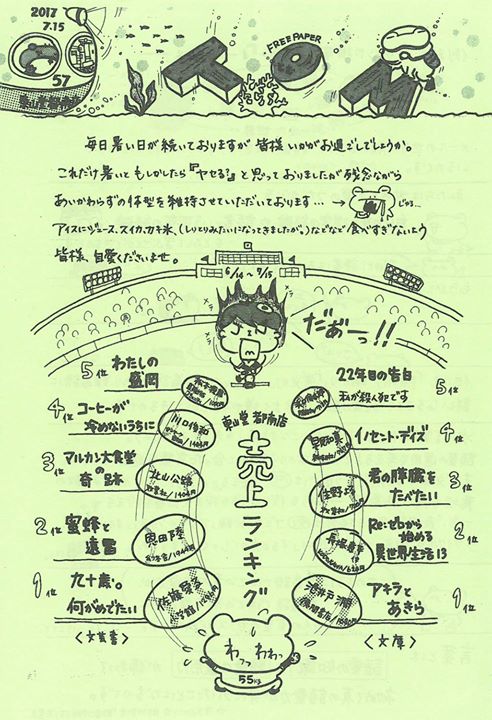 2017
7.15
57
FREE PAPER
TOM
毎日暑い日が続いておりますが皆様いかがお過ごしでしょうか。
これだけ暑いともしかしたら『ヤセる?』と思っておりましたが残念ながら
あいかわらずの体型を維持させていただいております…→
じゅる…
アイスにジュース、スイカ、カキ氷、(しりとりみたいになってきましたが。)などなど食べすぎないよう
皆様、自愛くださいませ。
6/14〜7/15
だあーっ!!
東山堂 都南店
売上ランキング
5位 わたしの盛岡
4位 コーヒーが冷めないうちに
川口俊和
3位 マルカン大食堂の奇跡
北山公路
双葉社/1404円
2位 蜜蜂と遠雷
恩田陸
幻冬舎/1944円
1位 九十歳。何がめでたい
佐藤愛子
小学館/1296円
〈文芸書〉
22年目の告白
私が殺人犯です
5位
イノセント・デイズ
4位
早見和真
君の膵臓をたべたい
3位
住野よる
双葉社
Re:ゼロから始める異世界生活13
2位
長月達平
アキラとあきら
1位
池井戸潤
徳間書店
〈文庫〉
わっわわっ
55kg